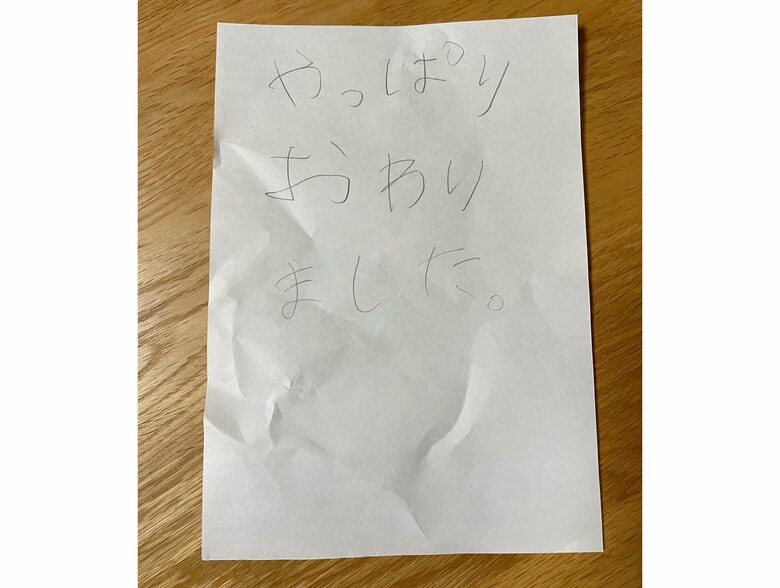 やっぱり
おわり
ました。